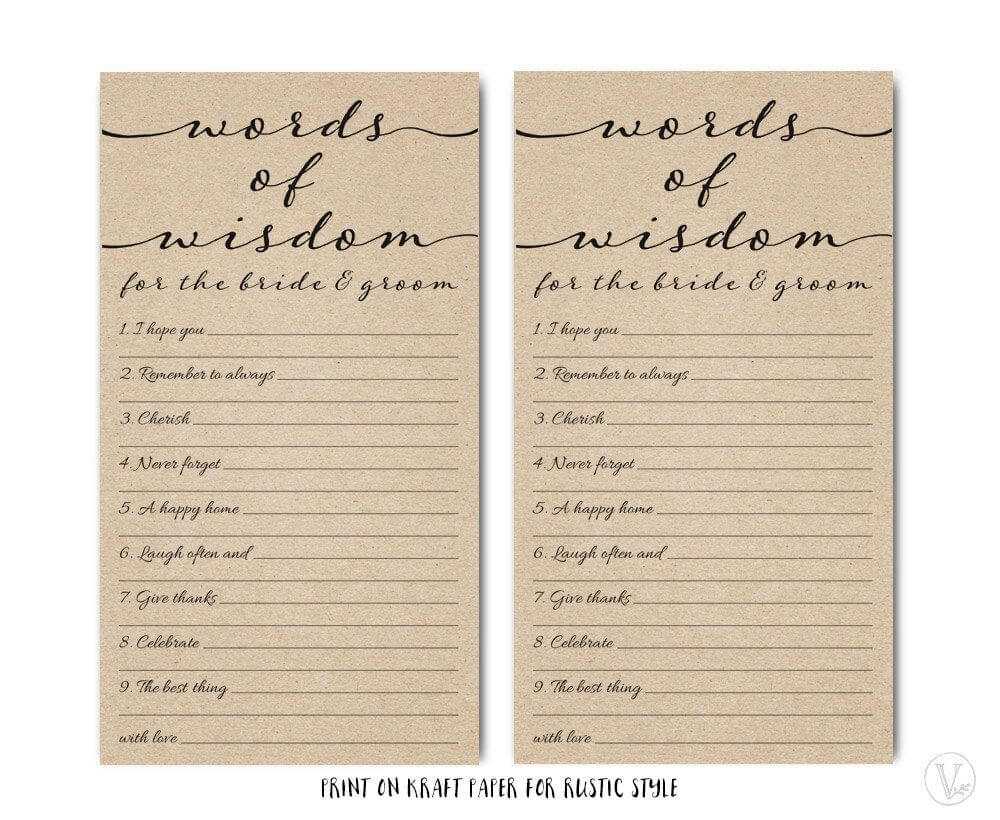 words
of
wisdom
for the bride & groom
1. I hope you
2. Remember to always
3. Cherish
4. Never forget
5. A happy home
6. Laugh often and
7. Give thanks
8. Celebrate
9. The best thing
with love
words
of
wisdom
for the bride & groom
1. I hope you
2. Remember to always
3. Cherish
4. Never forget
5. A happy home
6. Laugh often and
7. Give thanks
8. Celebrate
9. The best thing
with love
PRINT ON KRAFT PAPER FOR RUSTIC STYLE